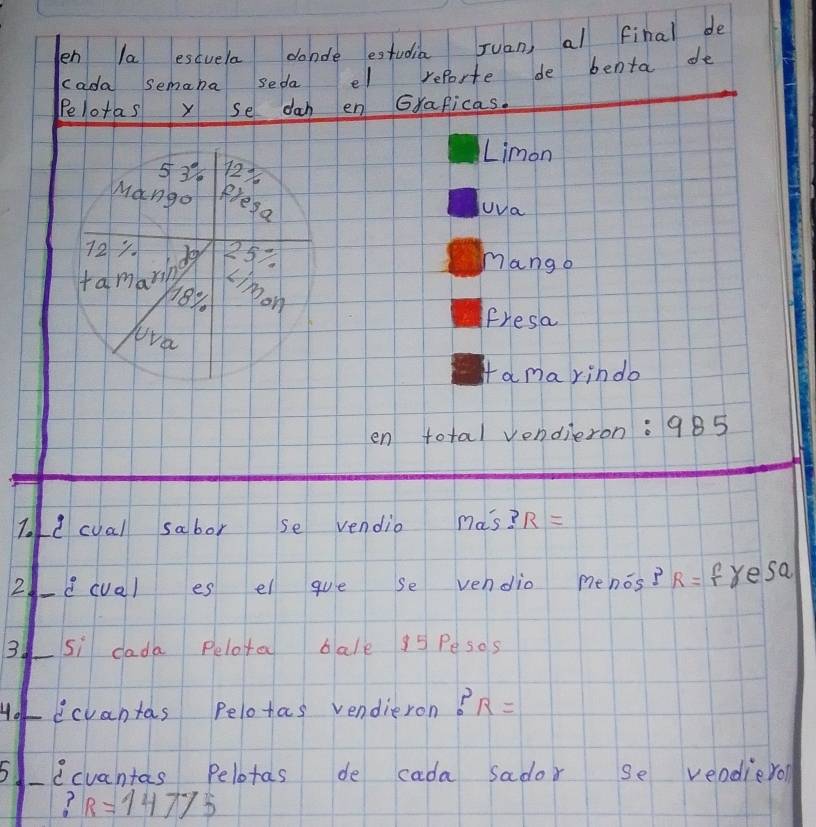 en la escuela donde estudia Juan, al final de
cada semana seda el reporte de benta de
Pelotas y se dan en Graficas.
53% 12%
Mango fresa
12% 25%
tamarindo Limon
18%
uva
Limon
uva
Mango
fresa
tamarindo
en total vendieron: 985
1._¿cual sabor se vendio más? R=
2._¿cual es el que se vendio menós? R= fresa
3._ Si cada Pelota bale $5 Pesos
4._¿cuantas Pelotas vendieron? R=
5._¿cuantas Pelotas de cada sador se vendieron
? R= 14775